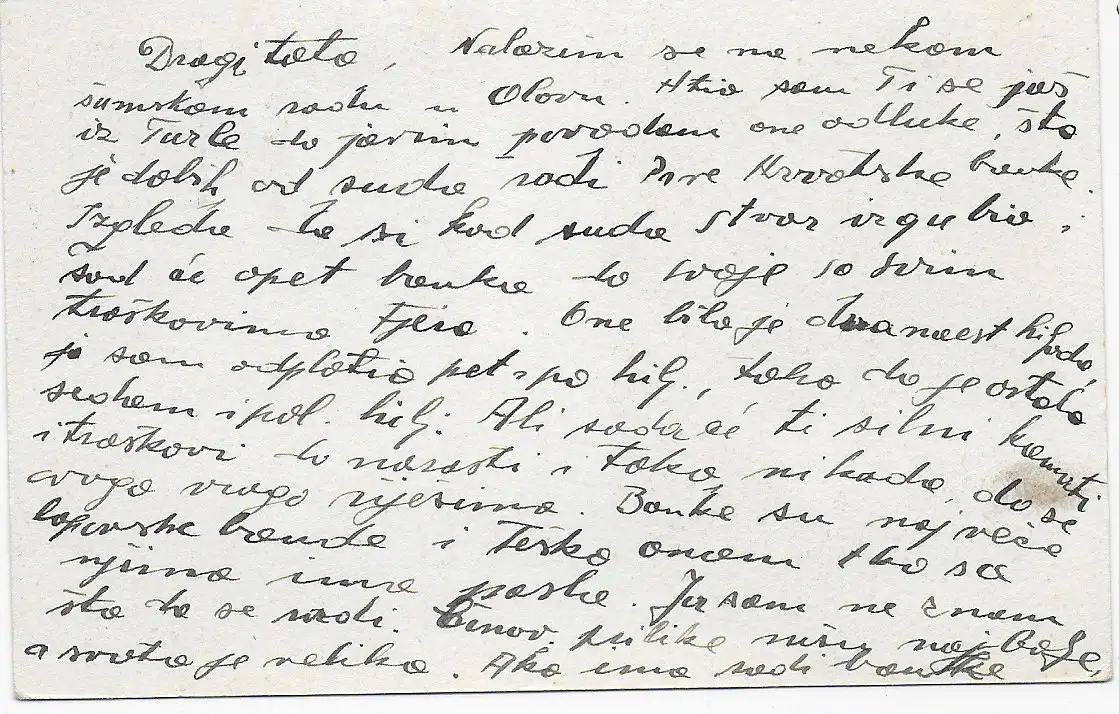 Dragi tata, Nalazim se na nekom
šumskom radu u Olovu. Htio sam Ti se još
iz Tuzle da javim povodom one odluke, što
je dobih od suda radi Prve Hrvatske banke.
Izgleda da si kod suda stvar izgubio i
sad će opet banka da svoje sa svim
troškovima tjera. Ono bilo je dvanaest hiljada,
ja sam odplatio pet i po hilj., tako da je ostalo
sedam i pol. hilj. Ali sada će ti silni kamati
i troškovi da narasti i tako nikada, da se
ovoga vraga riješimo. Banke su najveće
lopovske bande i teško onom tko sa
njima ima posla. Ja sam ne znam
šta da se radi. prilike nisu najbolje,
a svota je velika. Ako ima radi banke